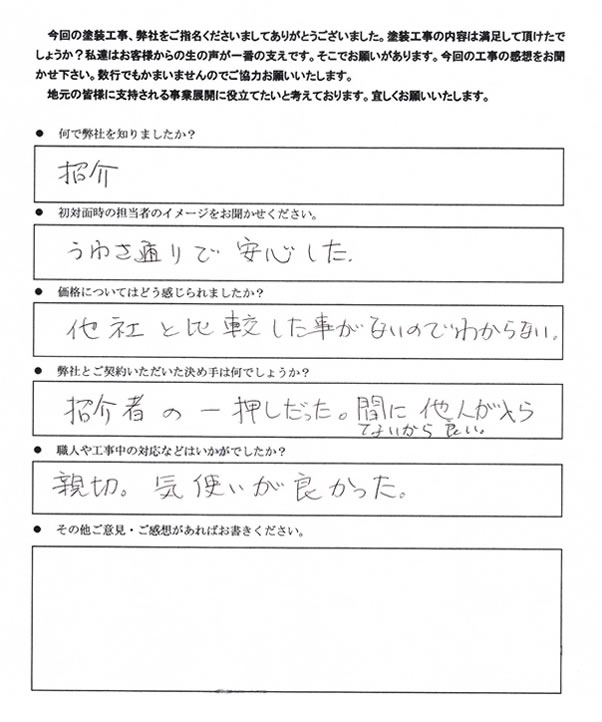 今回の塗装工事、弊社をご指名くださいましてありがとうございました。塗装工事の内容は満足して頂けたで
しょうか?私達はお客様からの生の声が一番の支えです。そこでお願いがあります。今回の工事の感想をお聞
かせ下さい。数行でもかまいませんのでご協力お願いいたします。
地元の皆様に支持される事業展開に役立てたいと考えております。宜しくお願いいたします。
● 何で弊社を知りましたか?
招介
● 初対面時の担当者のイメージをお聞かせください。
うわさ通りで安心した.
● 価格についてはどう感じられましたか?
他社と比較した事がないのでわからない。
● 弊社とご契約いただいた決め手は何でしょうか?
招介者の一押しだった。間に他人が入ら
てないから良い。
● 職人や工事中の対応などはいかがでしたか?
親切。気使いが良かった。
● その他ご意見・ご感想があればお書きください。